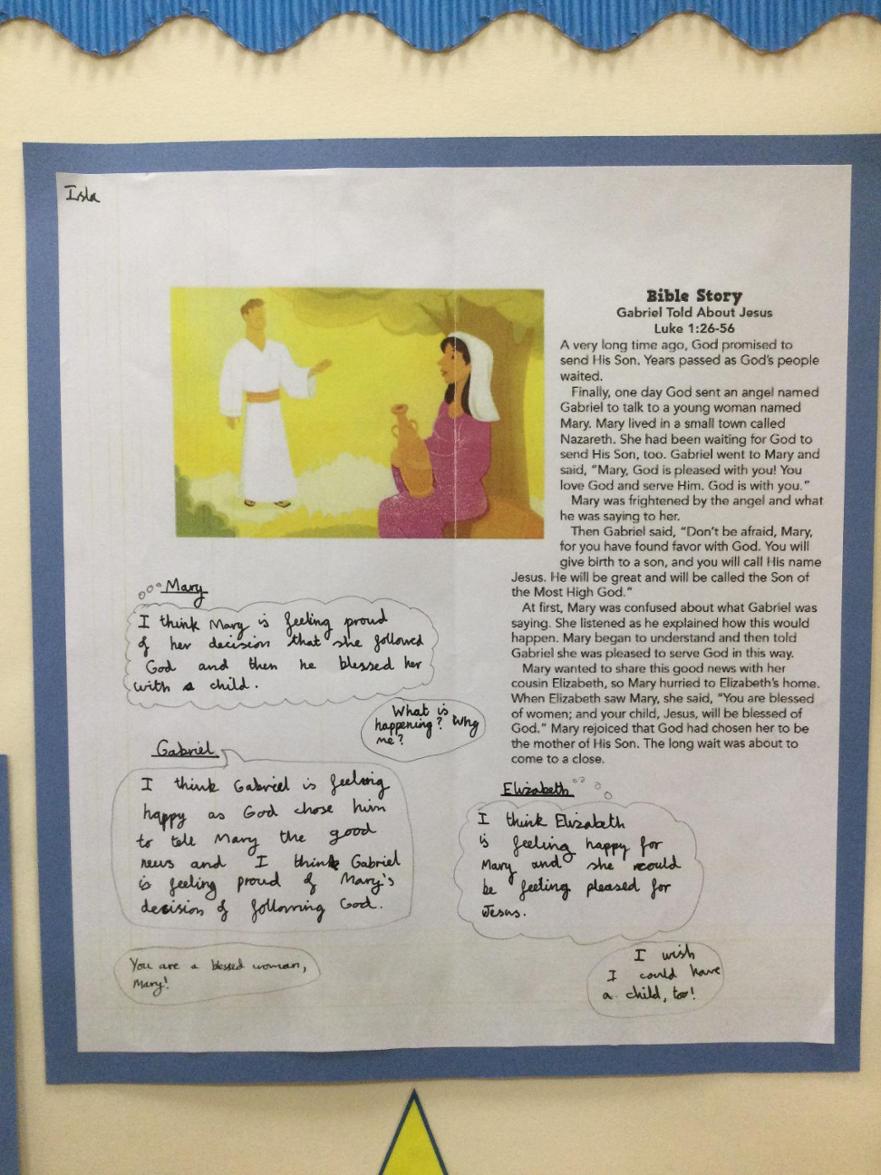 Isla
Bible Story
Gabriel Told About Jesus
Luke 1:26-56
A very long time ago, God promised to
send His Son. Years passed as God's people
waited.
Finally, one day God sent an angel named
Gabriel to talk to a young woman named
Mary. Mary lived in a small town called
Nazareth. She had been waiting for God to
send His Son, too. Gabriel went to Mary and
said, "Mary, God is pleased with you! You
love God and serve Him. God is with you."
Mary was frightened by the angel and what
he was saying to her.
Then Gabriel said, "Don't be afraid, Mary,
for you have found favor with God. You will
give birth to a son, and you will call His name
Jesus. He will be great and will be called the Son of
the Most High God."
At first, Mary was confused about what Gabriel was
saying. She listened as he explained how this would
happen. Mary began to understand and then told
Gabriel she was pleased to serve God in this way.
Mary wanted to share this good news with her
cousin Elizabeth, so Mary hurried to Elizabeth's home.
When Elizabeth saw Mary, she said, "You are blessed
of women; and your child, Jesus, will be blessed of
God." Mary rejoiced that God had chosen her to be
the mother of His Son. The long wait was about to
come to a close.
Mary
I think Mary is feeling proud
of her decision that she followed
God and then he blessed her
with a child.
What is
happening? Why
me?
Gabriel
I think Gabriel is feeling
happy as God chose him
to tell Mary the good
news and I think Gabriel
is feeling proud of Mary's
decision of following God.
You are a blessed woman,
Mary!
Elizabeth
I think Elizabeth
is feeling happy for
Mary and she could
be feeling pleased for
Jesus.
I wish
I could have
a child, too!